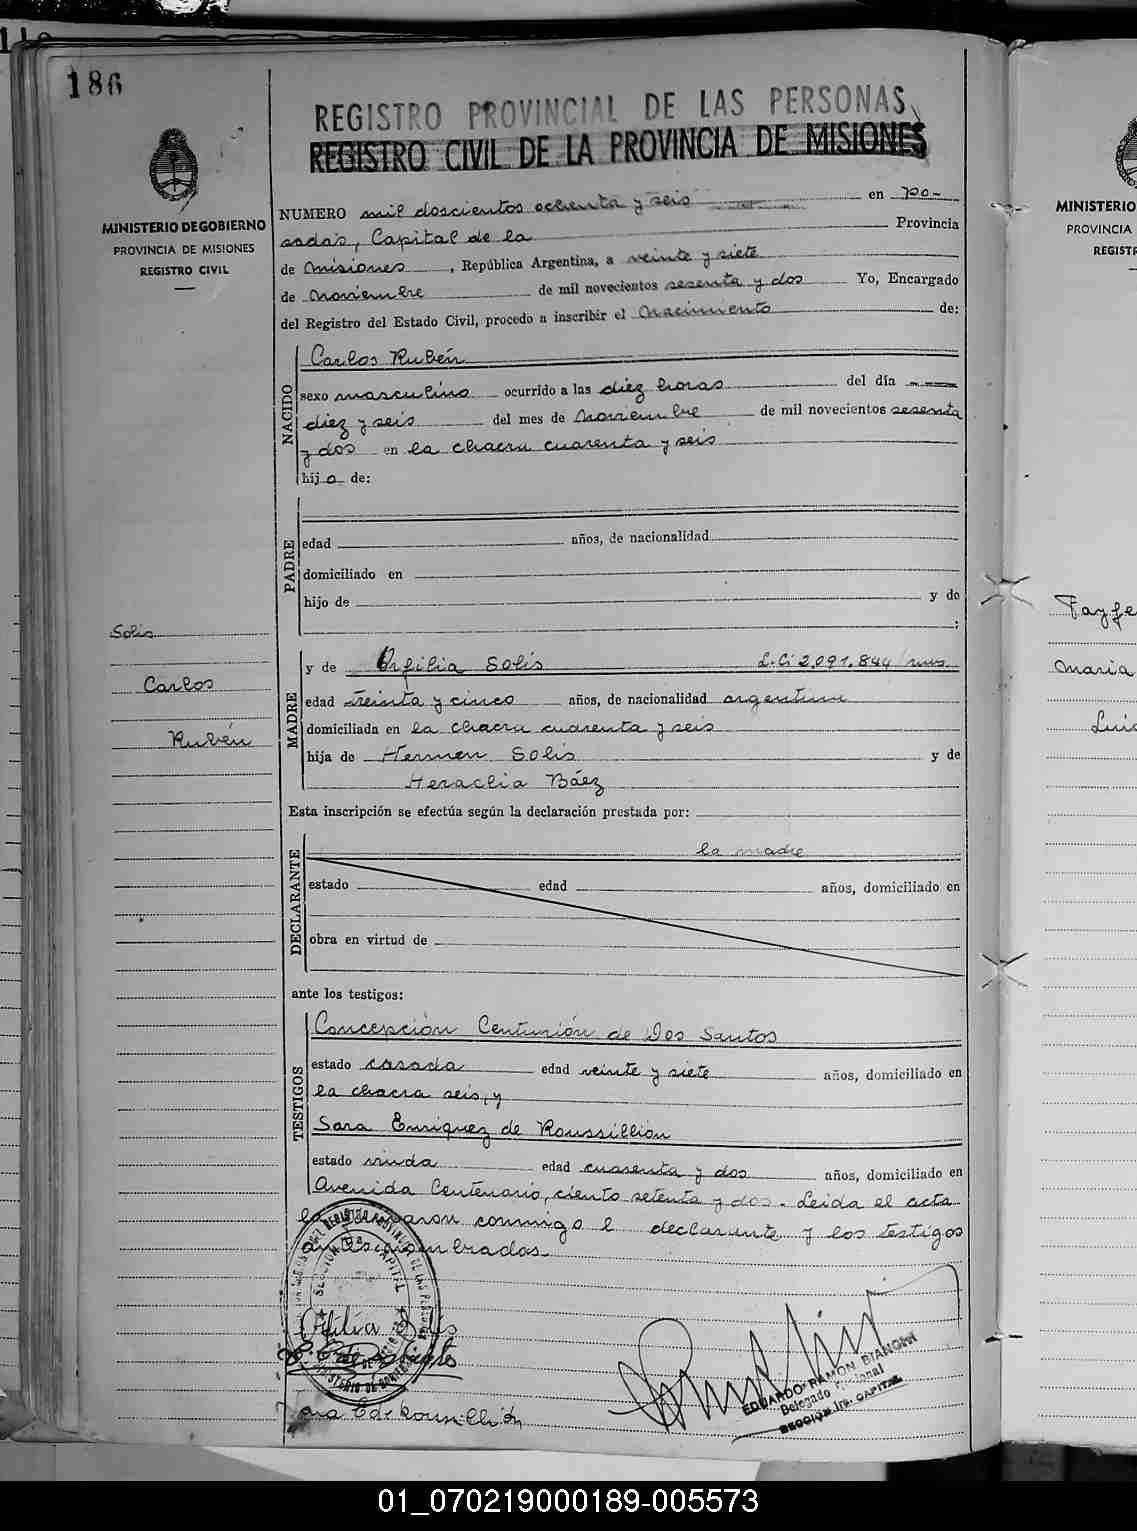 186
REGISTRO PROVINCIAL DE LAS PERSONAS
REGISTRO CIVIL DE LA PROVINCIA DE MISIONES
MINISTERIO DE GOBIERNO
PROVINCIA DE MISIONES
REGISTRO CIVIL
NUMERO mil doscientos ochenta y seis en Po-
sadas, Capital de la Provincia
de Misiones, República Argentina, a veinte y siete
de Noviembre de mil novecientos sesenta y dos Yo, Encargado
del Registro del Estado Civil, procedo a inscribir el Nacimiento de:
NACIDO
Carlos Rubén
sexo masculino ocurrido a las diez horas del día
diez y seis del mes de Noviembre de mil novecientos sesenta
y dos en la chacra cuarenta y seis
hijo de:
PADRE
edad años, de nacionalidad
domiciliado en
hijo de y de
;
Solis
Carlos
Rubén
MADRE
y de Orfilia Solis L.Ci 2.091.844
edad treinta y cinco años, de nacionalidad argentina
domiciliada en la chacra cuarenta y seis
hija de Hermen Solis y de
Heraclia Báez
Esta inscripción se efectúa según la declaración prestada por:
DECLARANTE
la madre
estado edad años, domiciliado en
obra en virtud de
ante los testigos:
TESTIGOS
Concepción Centurión de Dos Santos
estado casada edad veinte y siete años, domiciliado en
la chacra seis, y
Sara Enriquez de Roussillion
estado viuda edad cuarenta y dos años, domiciliado en
Avenida Centenario, ciento setenta y dos. Leida el acta
la conmigo declarante y los testigos
Orfilia Solis
EDUARDO RAMON BIANCHI
Delegado
SECCION 1ra. CAPITAL
MINISTERIO
PROVINCIA
REGIST
Payfe
Maria
Luis
01_070219000189-005573